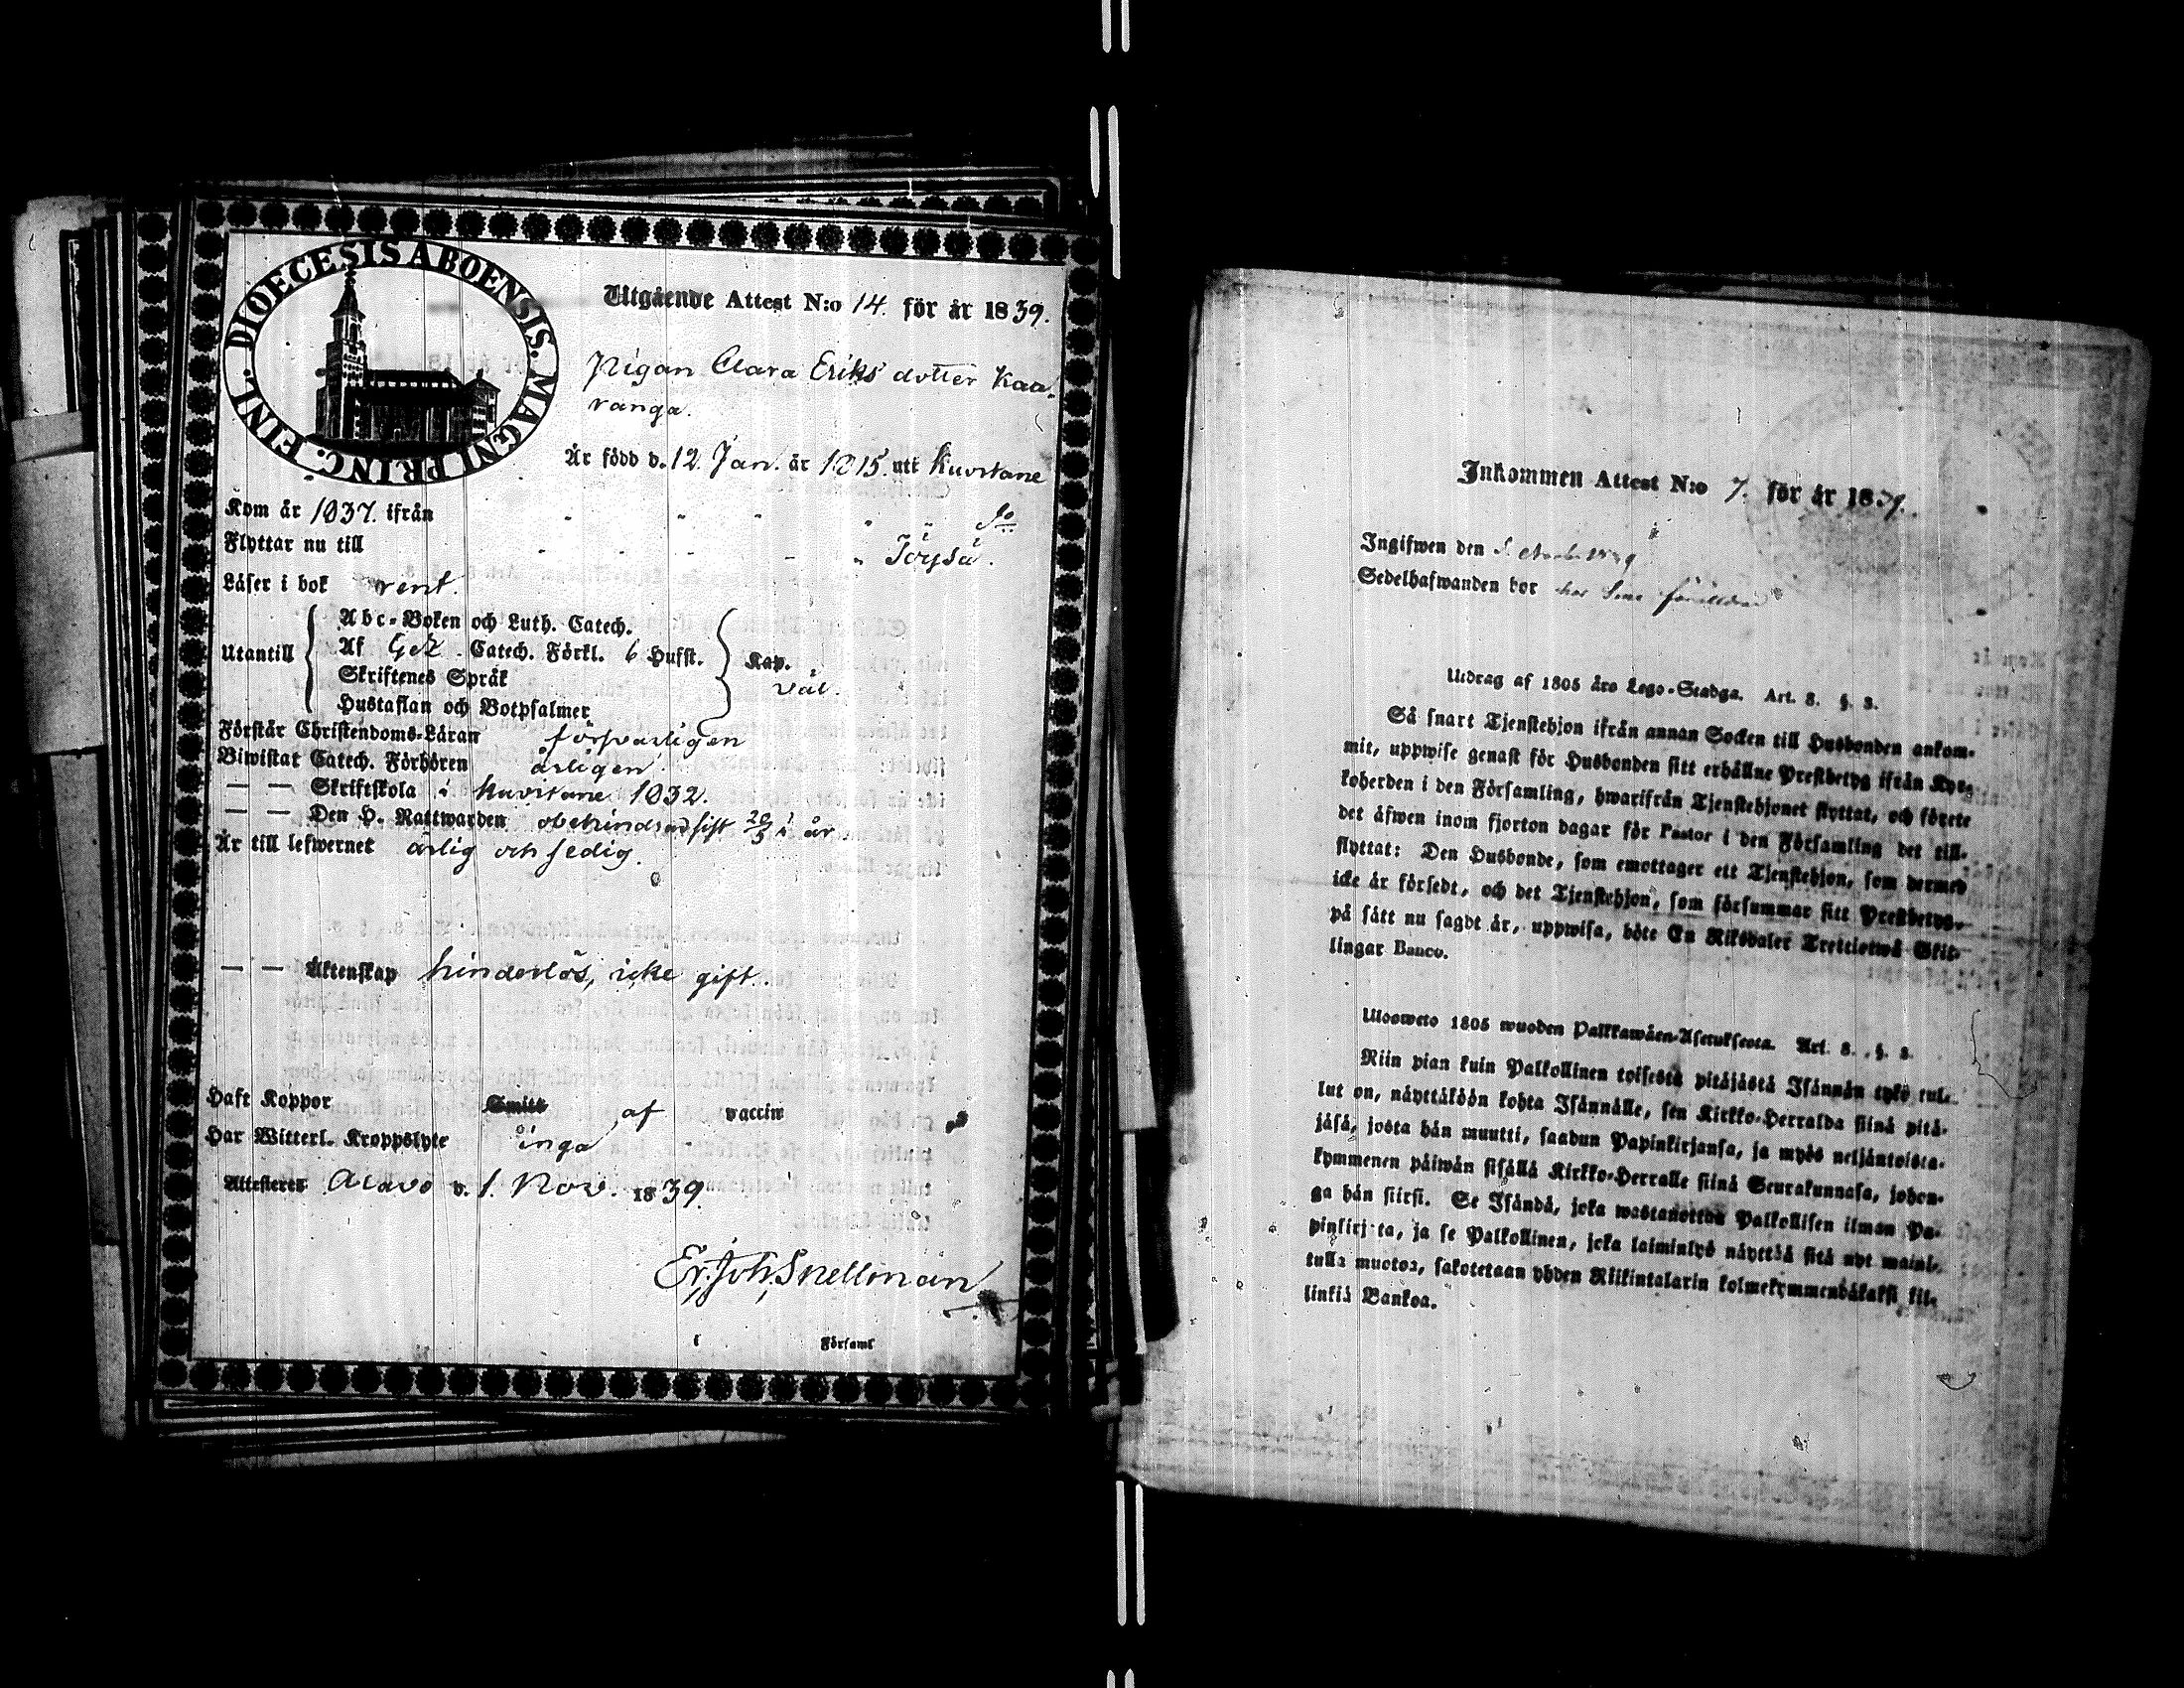 DIOECESIS ABOENSIS. MAGNI PRINC. FINL.
Utgående Attest N:o 14. för år 1839.
Pigan Clara Eriks dotter Kaa-
ranga.
Är född d. 12. Jan. år 1815. uti Kuortane
Kom år 1837. ifrån " " " " " do
Flyttar nu till " " " " " Töysä.
Läser i bok rent.
Utantill
Abc-Boken och Luth. Catech.
Af Gez. Catech. Förkl. 6 Hufst.
Skriftenes Språk
Hustaflan och Botpsalmer
Kap.
väl.
Förstår Christendoms-Läran försvarligen
Biwistat Catech. Förhören årligen.
— — Skriftskola i Kuortane 1832.
— — Den H. Nattwarden obehindrad sist 20/5 i år
Är till lefwernet ärlig och sedig.
— — Äktenskap hinderlös, icke gift.
Haft Koppor Smitt af vaccin
Har Witterl. Kroppslyte inga
Attesteres Alavo d. 1. Nov. 1839.
Er. Joh. Snellman
i Församl
Inkommen Attest N:o 7. för år 1839.
Ingifwen den
Sedelhafwanden bor hos sina föräldrar
Utdrag af 1805 års Lego-Stadga. Art. 8. §. 3.
Så snart Tjenstehjon ifrån annan Socken till Husbonden ankom-
mit, uppwise genast för Husbonden sitt erhållne Prestbetyg ifrån Kyr-
koherden i den Församling, hwarifrån Tjenstehjonet flyttat, och förete
det äfwen inom fjorton dagar för Pastor i den Församling det till-
flyttat: Den Husbonde, som emottager ett Tjenstehjon, som dermed
icke är försedt, och det Tjenstehjon, som försummar sitt Prestbetyg,
på sätt nu sagdt är, uppwisa, böte En Riksdaler Trettiotwå Skil-
lingar Banco.
Ulosweto 1805 wuoden Palkkawäen-Asetuksesta. Art. 8. §. 3.
Niin pian kuin Palkollinen toisesta pitäjästä Isännän tykö tul-
lut on, näyttäköön kohta Isännälle, sen Kirkko-Herralda siinä pitä-
jäsä, josta hän muutti, saadun Papinkirjansa, ja myös neljäntoista-
kymmenen päiwän sisällä Kirkko-Herralle siinä Seurakunnasa, johon-
ga hän siirsi. Se Isändä, joka wastanottaa Palkollisen ilman Pa-
pinkirjata, ja se Palkollinen, joka laiminlyö näyttää sitä nyt maini-
tulla muotoa, sakotetaan yhden Riikintalarin kolmekymmendäkaksi kil-
linkiä Bankoa.